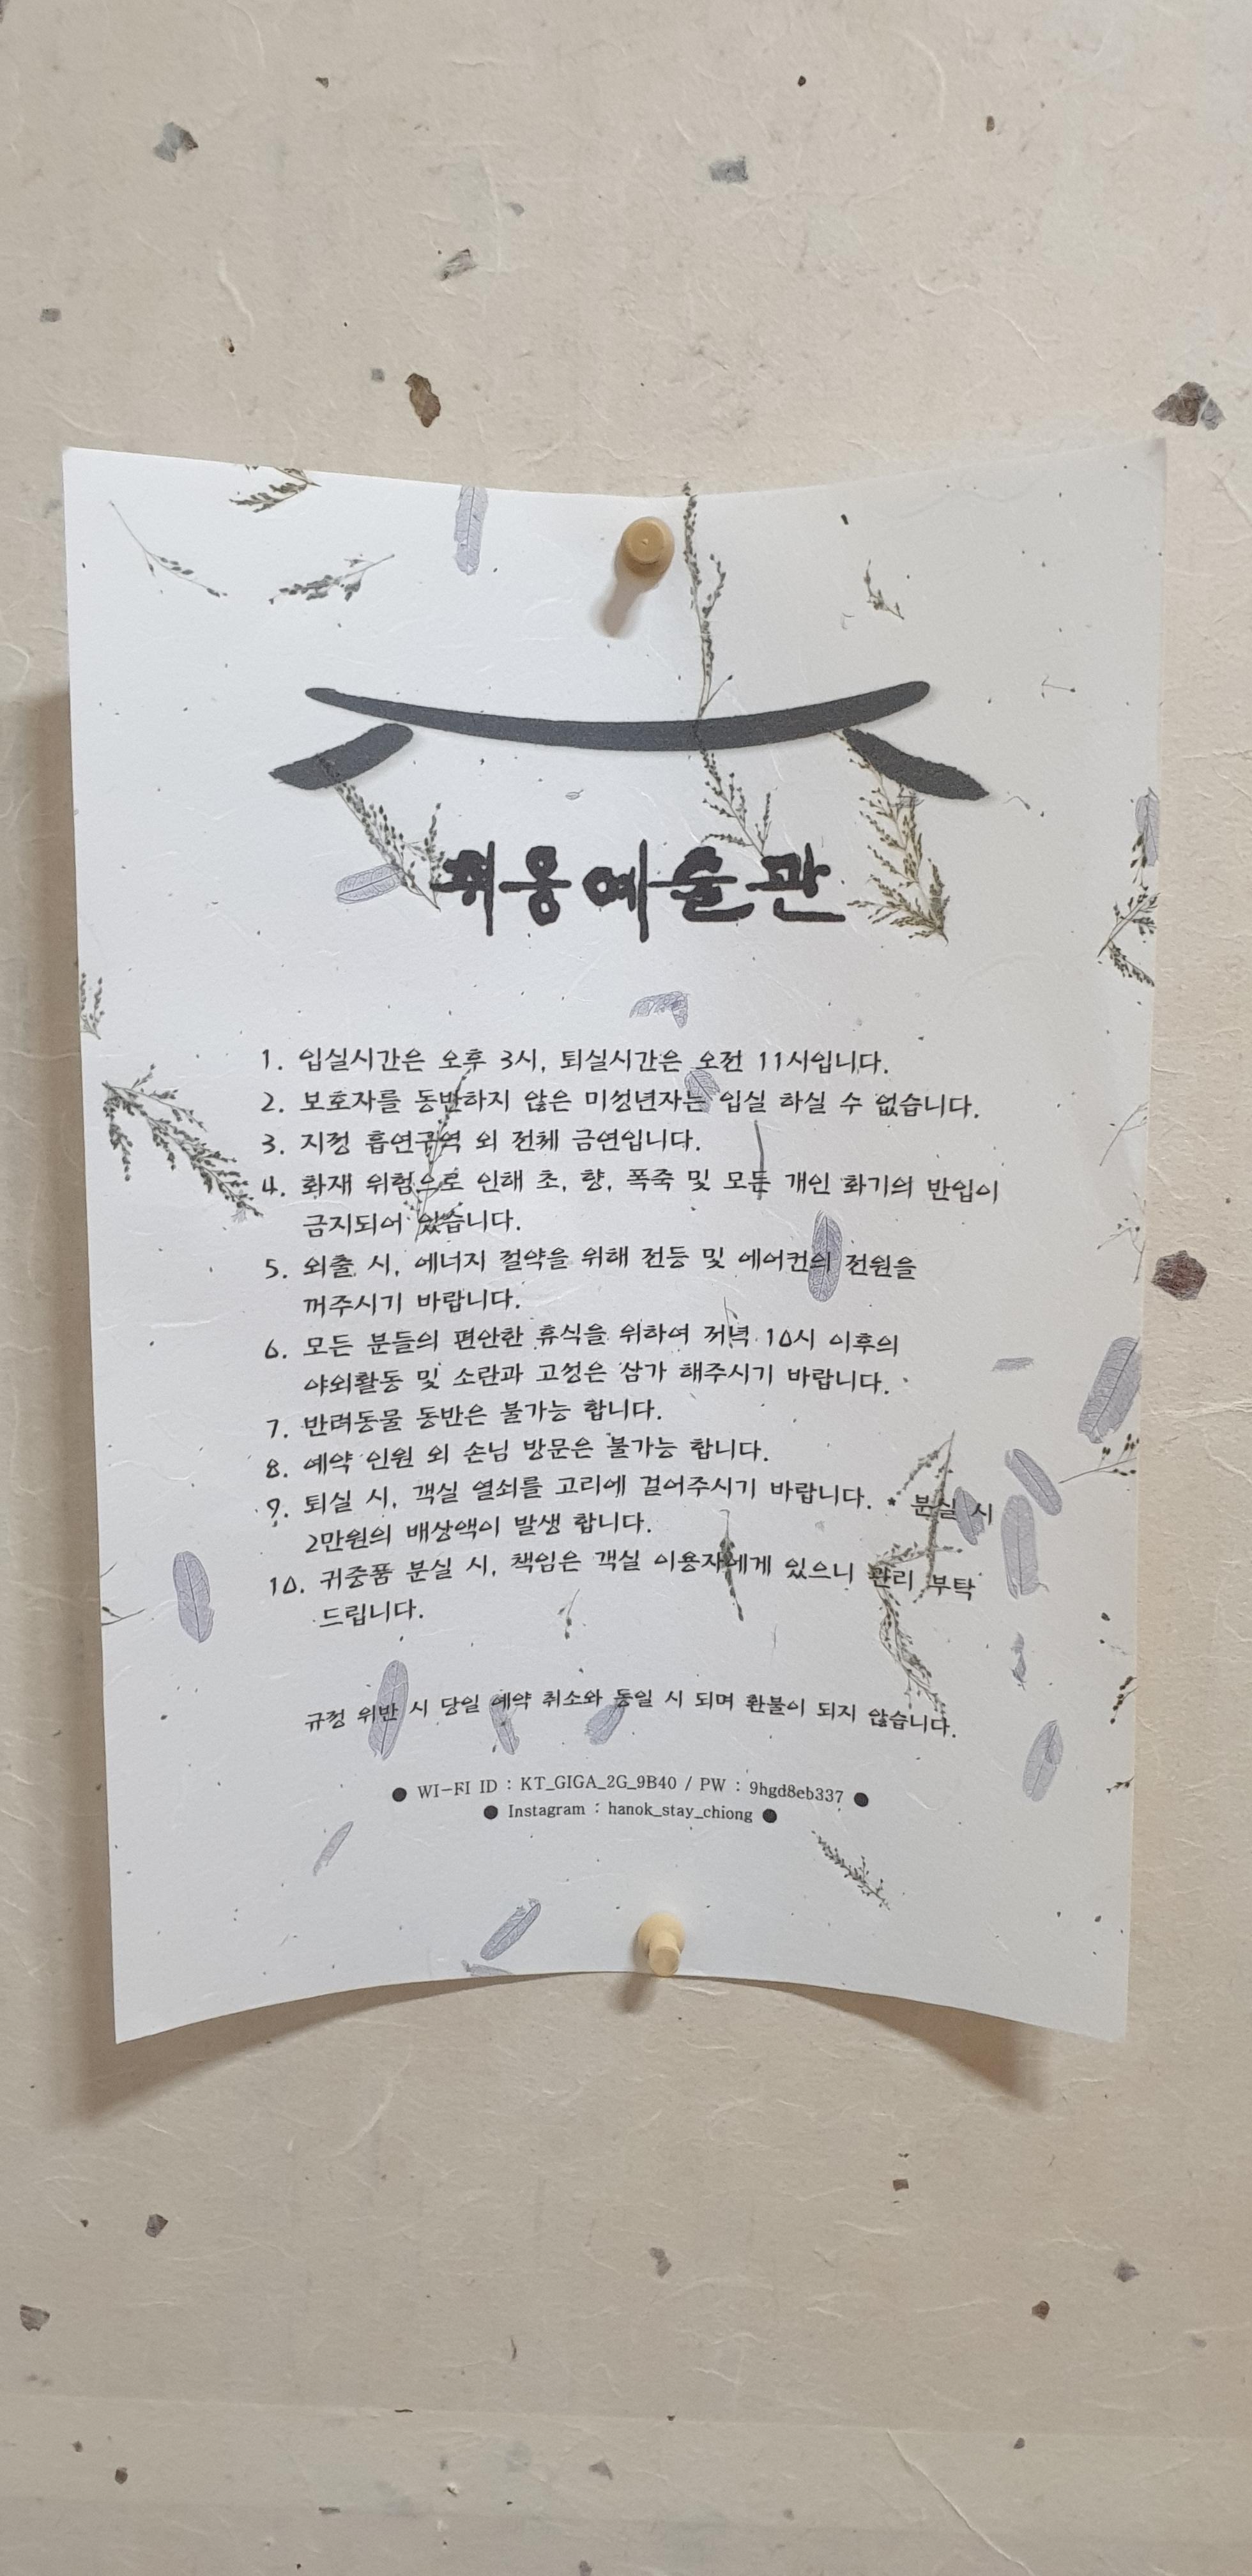 취옹예술관
1. 입실시간은 오후 3시, 퇴실시간은 오전 11시입니다.
2. 보호자를 동반하지 않은 미성년자는 입실 하실 수 없습니다.
3. 지정 흡연구역 외 전체 금연입니다.
4. 화재 위험으로 인해 초, 향, 폭죽 및 모든 개인 화기의 반입이
금지되어 있습니다.
5. 외출 시, 에너지 절약을 위해 전등 및 에어컨의 전원을
꺼주시기 바랍니다.
6. 모든 분들의 편안한 휴식을 위하여 저녁 10시 이후의
야외활동 및 소란과 고성은 삼가 해주시기 바랍니다.
7. 반려동물 동반은 불가능 합니다.
8. 예약 인원 외 손님 방문은 불가능 합니다.
9. 퇴실 시, 객실 열쇠를 고리에 걸어주시기 바랍니다. * 분실 시
2만원의 배상액이 발생 합니다.
10. 귀중품 분실 시, 책임은 객실 이용자에게 있으니 관리 부탁
드립니다.
규정 위반 시 당일 예약 취소와 동일 시 되며 환불이 되지 않습니다.
● WI-FI ID : KT_GIGA_2G_9B40 / PW : 9hgd8eb337 ●
● Instagram : hanok_stay_chiong ●